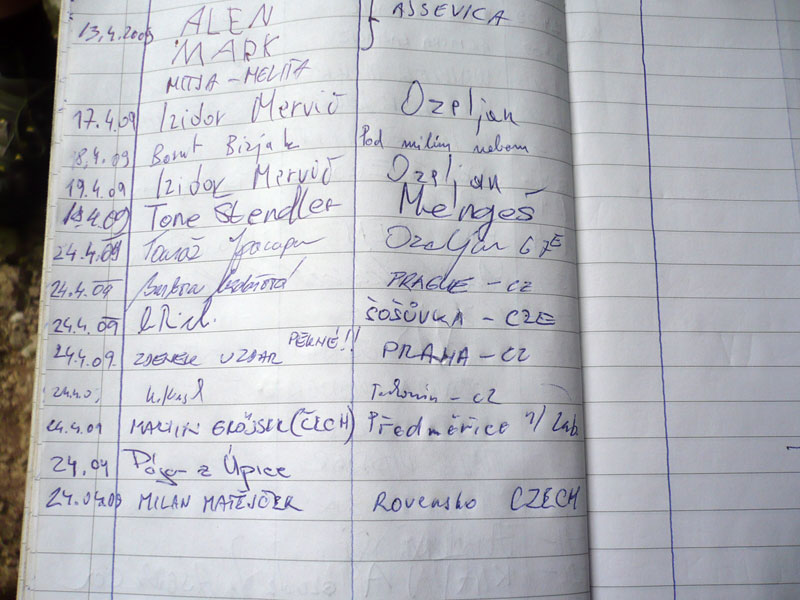 13.4.2009 ALEN } ASSEVICA
MARK
MITJA - MELITA
17.4.09 Izidor Mervič Ozeljan
18.4.09 Borut Bizjak Pod milim nebom
19.4.09 Izidor Mervič Ozeljan
19.4.09 Tone Stendler Mengeš
24.4.09 Tomaž Ozeljan 67E
24.4.09 PRAGUE - CZ
24.4.09 ŠOŠŮVKA - CZE
PĚKNÉ!!
24.4.09. ZDENEK UZDAR PRAHA - CZ
- CZ
24.4.09 MARTIN (ČECH) Předměřice n/Lab.
24.04 z Úpice
24.04.09 MILAN MATĚJČEK Rovensko CZECH